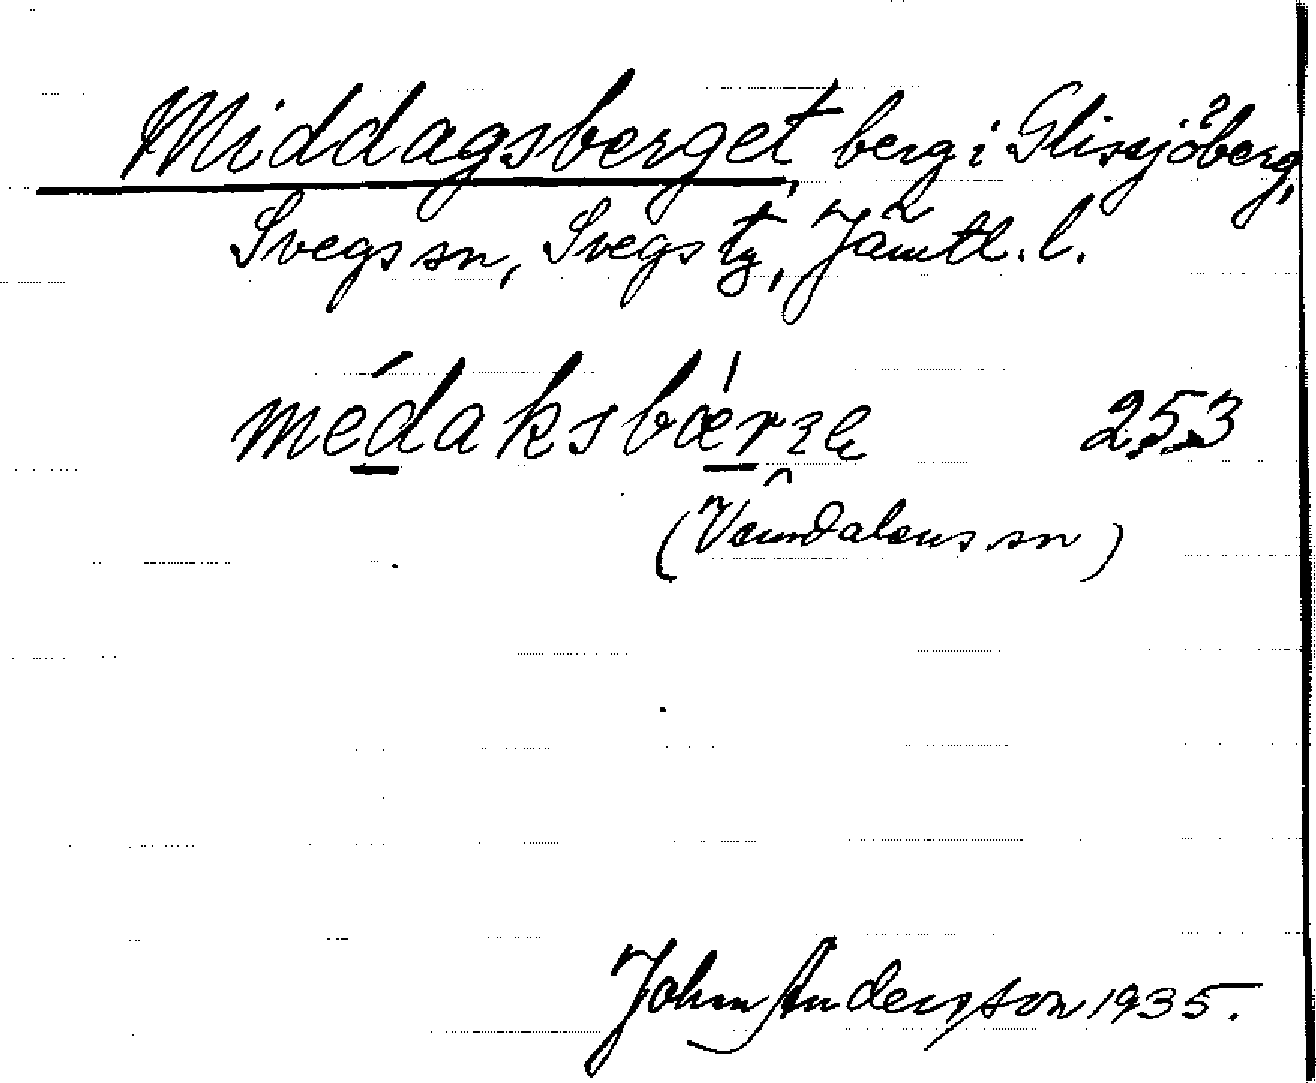 Middagsberget, berg i Glissjöberg,
Svegs sn, Svegs tg, Jämtl. l.
médaksbærze 253
(Vemdalens sn)
John Andersson 1935.